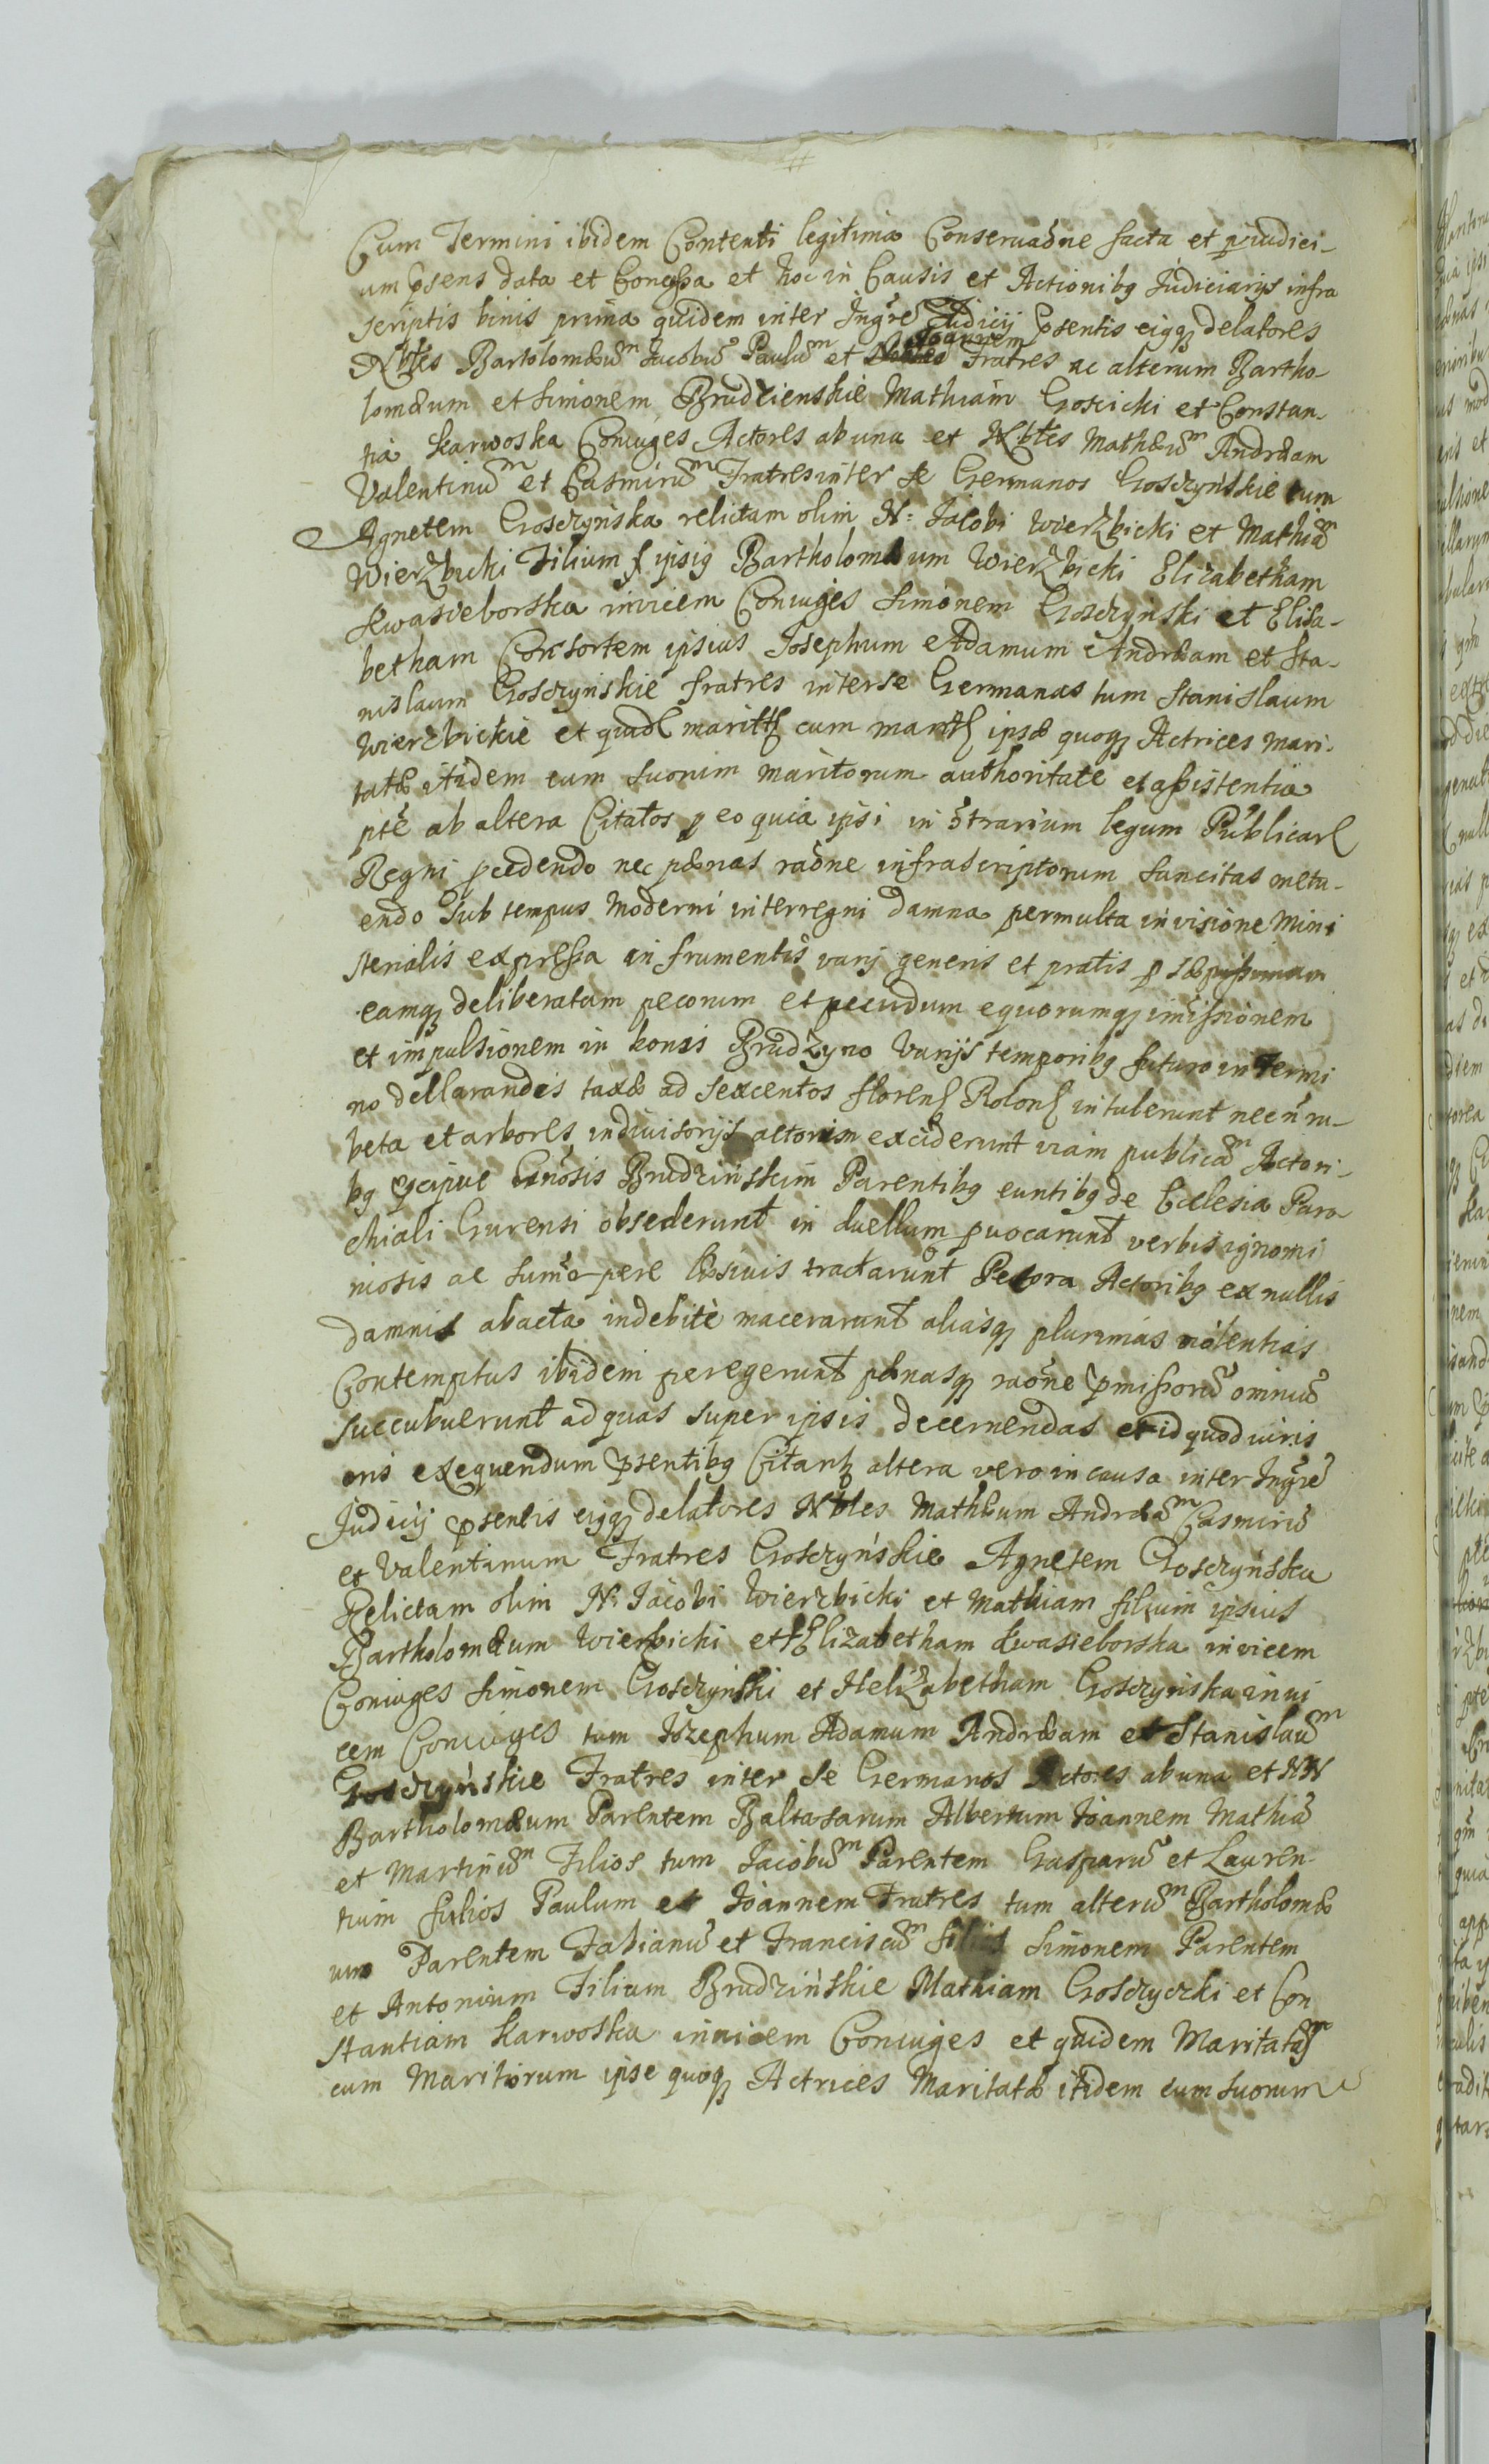 Cum Termini ibidem Contenti legitima Conservaõne facta et p iudici-
um p̃sens data et Concessa et hoc in Causis et Actionibꝰ Judiciarijs infra
scriptis binis prima quidem inter Jng̃re Judicij p̃sentis eiꝰqꝫ delatores
Joannem
Nbłes Bartolomæũm Jacobũ Paulũm et Fratres ac alterum Bartho-
lomæum et Simonem Brudzienskie Mathiam Goscicki et Constan-
tia Karwoska Coniuges Actores ab una et Nbłes Mathæũm Andræam
Valentinũm et Casmirũm Fratres inter se Germanos Gosczyńskie tum
Agnetem Gosczyńska relictam olim N: Jacobi Wierzbicki et Mathiãm
Wierzbicki Filium ipsiꝰ Bartholomæum Wierzbicki Elizabetham
Kwasieborska invicem Coniuges Simonem Gosczyński et Elisa-
betham Consortem ipsius Josephum Adamum Andræam et Sta-
nislaum Gosczyńskie fratres inter se Germanas tum Stanislaum
Wierzbickie et quidẽ maritꝫ cum maritꝫ ipsæ quoqꝫ Actrices mari-
tatæ itidem cum suorum maritorum authoritate et assistentia
ptẽ ab altera Citatos p eo quia ipsi in õtrarium legum Publicarꝫ
Regni pcedendo nec pænas raõne infrascriptorum sancitas metu-
endo sub tempus moderni interregni damna permulta in visione Mini
sterialis expressa in frumentis varij generis et pratis p sæpissimam
eamqꝫ deliberatam pecorum et pecudum equorumqꝫ imissionem
et impulsionem in bonis Brudzyno varijs temporibꝰ futuro in Termi
no dellarandis taxæ ad sexcentos florenꝫ Polonꝫ intulerunt necñ ru-
beta et arbores indivisorijs actorum exciderunt viam publicãm Actori-
bꝰ p̃cipue Gñosis Brudzińskim Parentibꝰ euntibꝰ de Ecclesia Paro-
chiali Gurensi obsederunt in duellum pvocarunt verbis ignomi
niosis ac sum̃opere lxsivis tractarunt Pecora Actoribꝰ ex nullis
damnis abacta indebitè macerarunt aliasqꝫ plurimas violentias
Contemptus ibidem peregerunt pænasqꝫ raõne p̃missorũ omniũ
succubuerunt ad quas super ipsis decernendas et id quod iuris
eris exequendum p̃sentibꝰ Citantꝫ altera vero in causa inter Jng̃re
Judicij p̃sentis eiꝰqꝫ delatores Nbłes Mathæum Andræãm Casmirũ
et Valentinum Fratres Gosczyńskie Agnetem Gosczyńska
Relictam olim N: Jacobi Wierzbicki et Mathiam filium ipsius
Bartholomæum Wierzbicki et Elizabetham Kwasieborska invicem
Coniuges Simonem Gosczyński et Helizabetham Gosczyńska invi
cem Coniuges tum Jozephum Adamum Andræam et Stanislaũm
Gosczyńskie Fratres inter se Germanos Actores ab una et NN
Bartholomæum Parentem Baltasarum Albertum Joannem Mathiã
et Martinũm Filios tum Jacobũm Parentem Gasparũ et Lauren-
tium filios Paulum et Joannem Fratres tum alterũm Bartholomæ
um Parentem Fabianũ et Franciscũm filios Simonem Parentem
et Antonium Filium Brudzińskie Mathiam Gosczyczki et Con
stantiam Karwoska invicem Coniuges et quidem Maritatas
cum Maritiorum ipse quoqꝫ Actrices Maritatæ itidem cum suorum